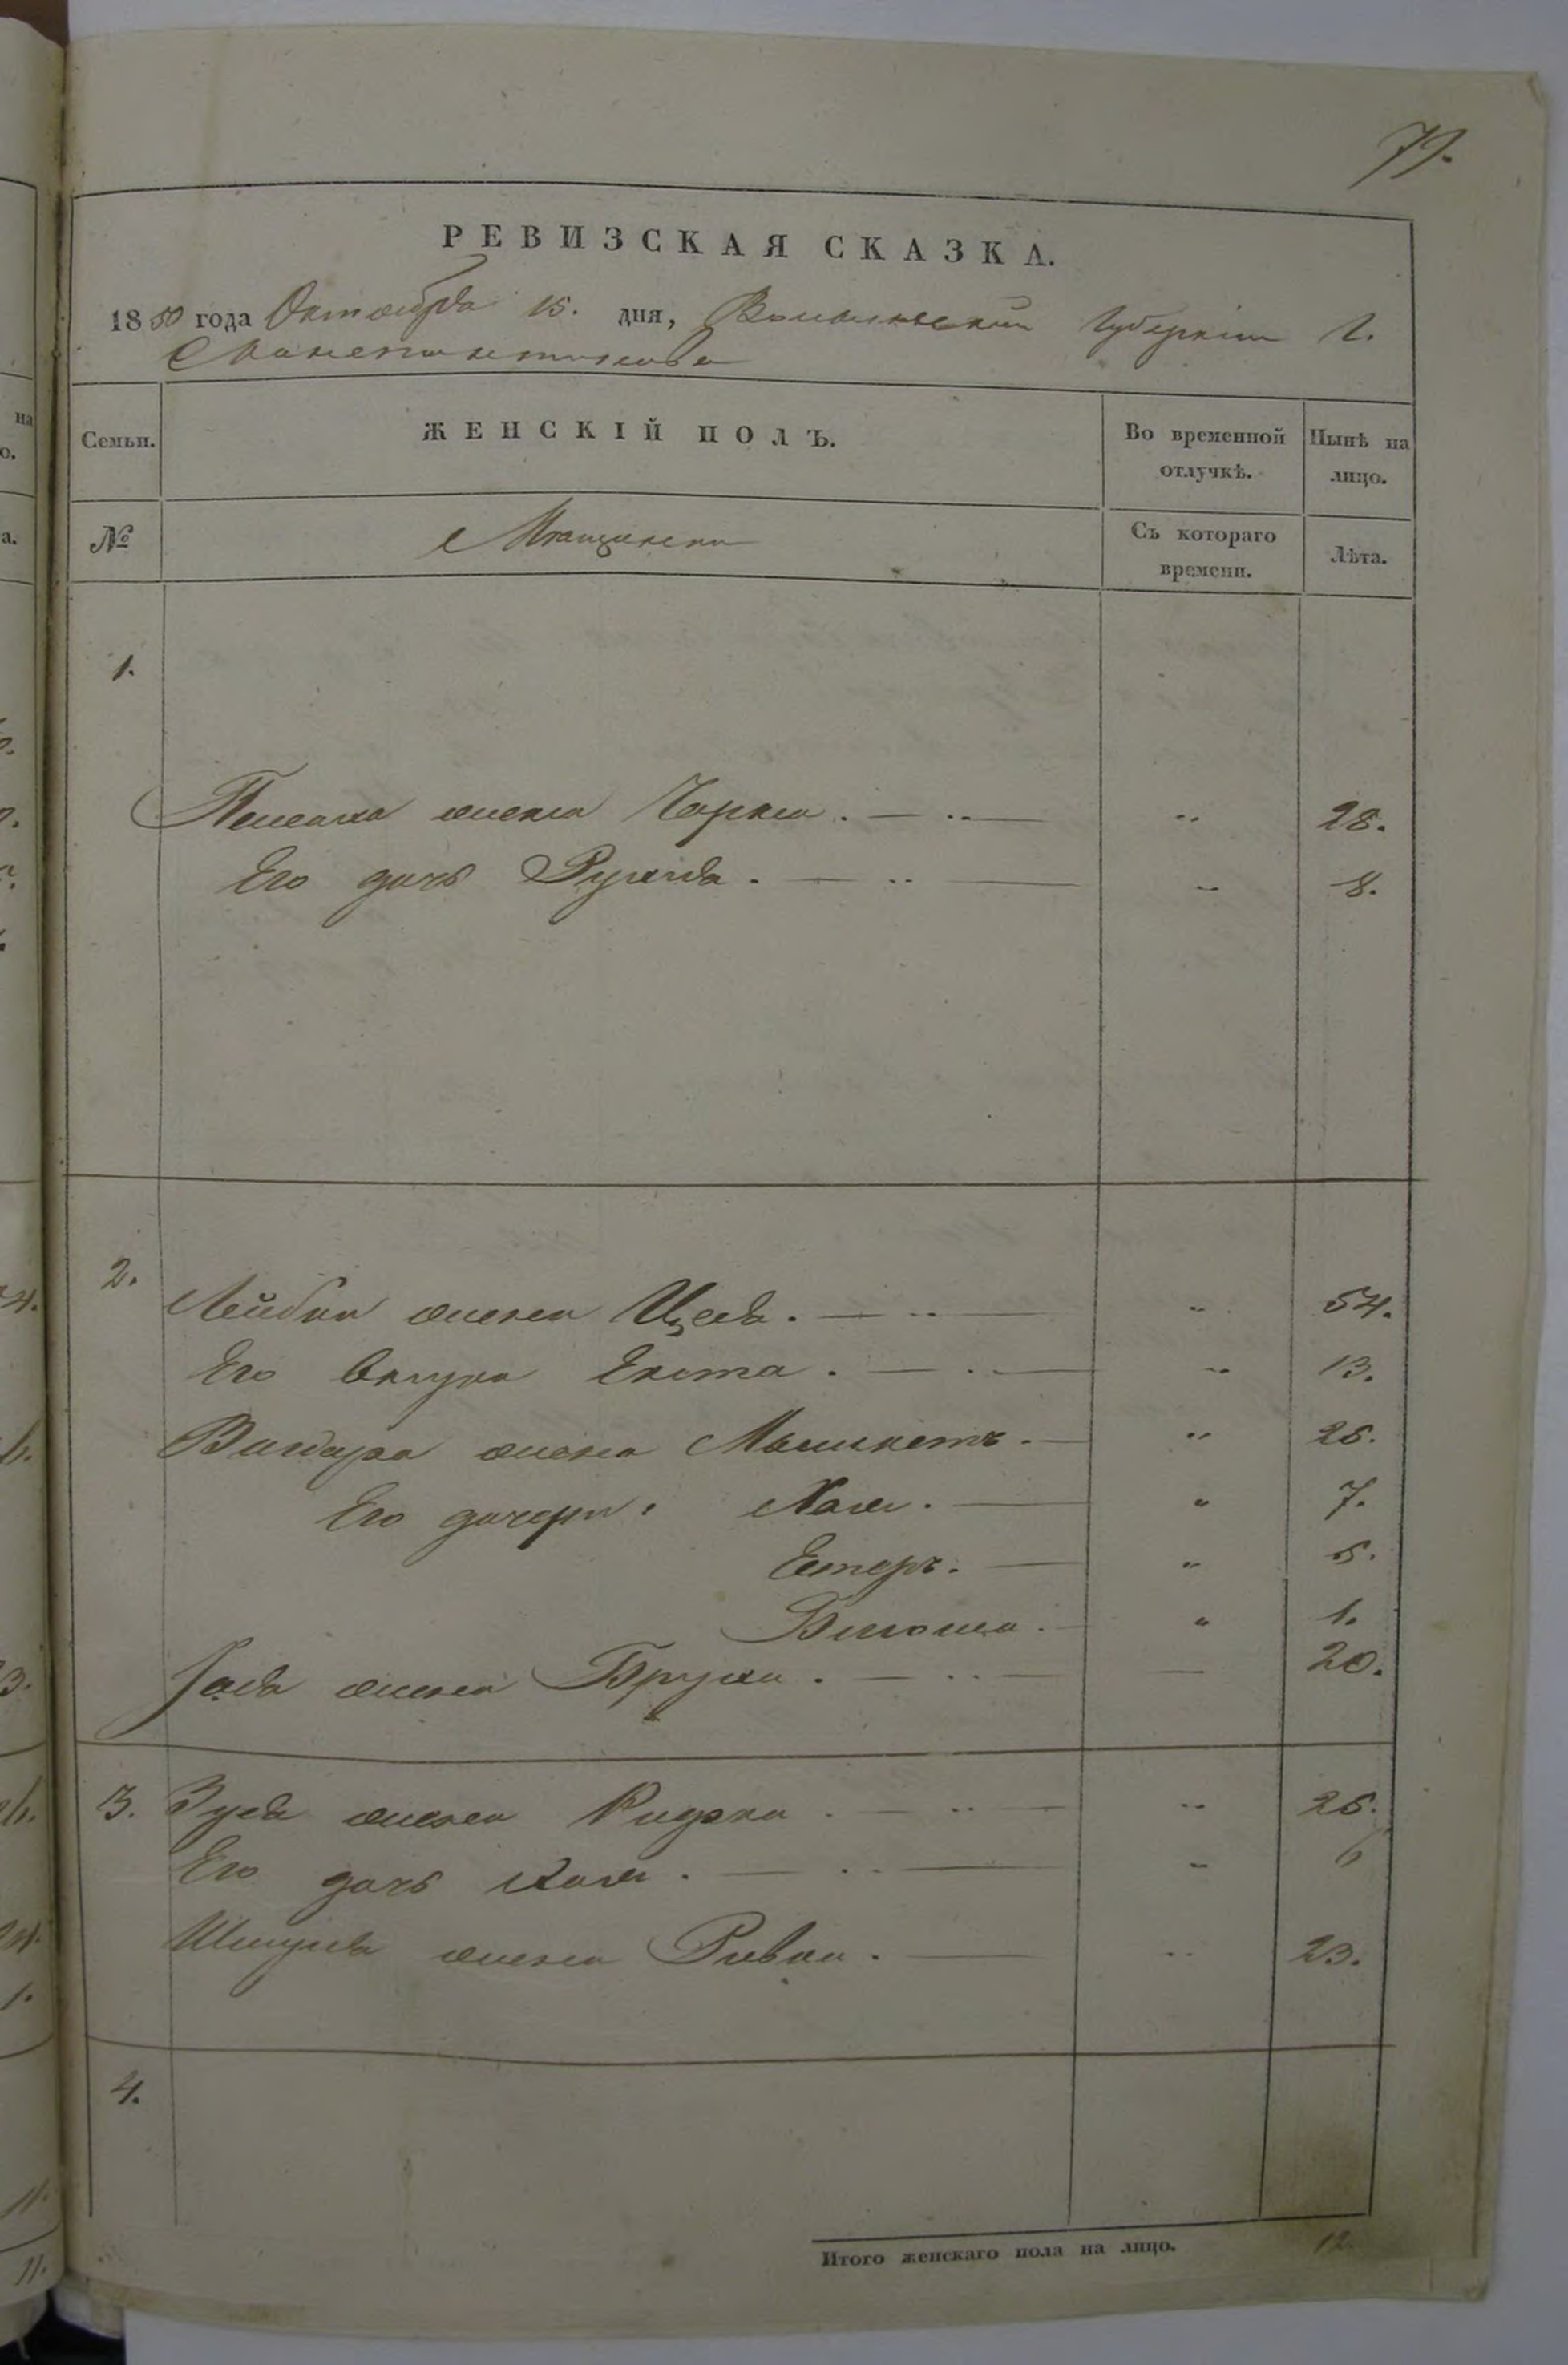 79.
РЕВИЗСКАЯ СКАЗКА.
1850 года Октября 15. дня, Волынской Губерніи Г.
Староконстантинова
Семьи.
ЖЕНСКІЙ ПОЛЪ.
Во временной отлучкѣ.
Нынѣ на лицо.
№
Мѣщански
Съ котораго времени.
Лѣта.
1.
жена Чарна. — „ — „ 28.
Его дочь Рухля. — „ — „ 8.
2. Лейбы жена Цея. — „ — „ 54.
Его внука Ента. — „ — „ 13.
жена — „ 25.
Его дочери: Хая. — „ 7.
Естеръ. — „ 5.
— „ 1.
жена Бруха. — „ — — 20.
3. Зуся жена — „ — „ 25.
Его дочь Хая. — „ — „ 6
Шмуля жена Ривка. — „ 23.
4.
Итого женскаго пола на лицо. 12.